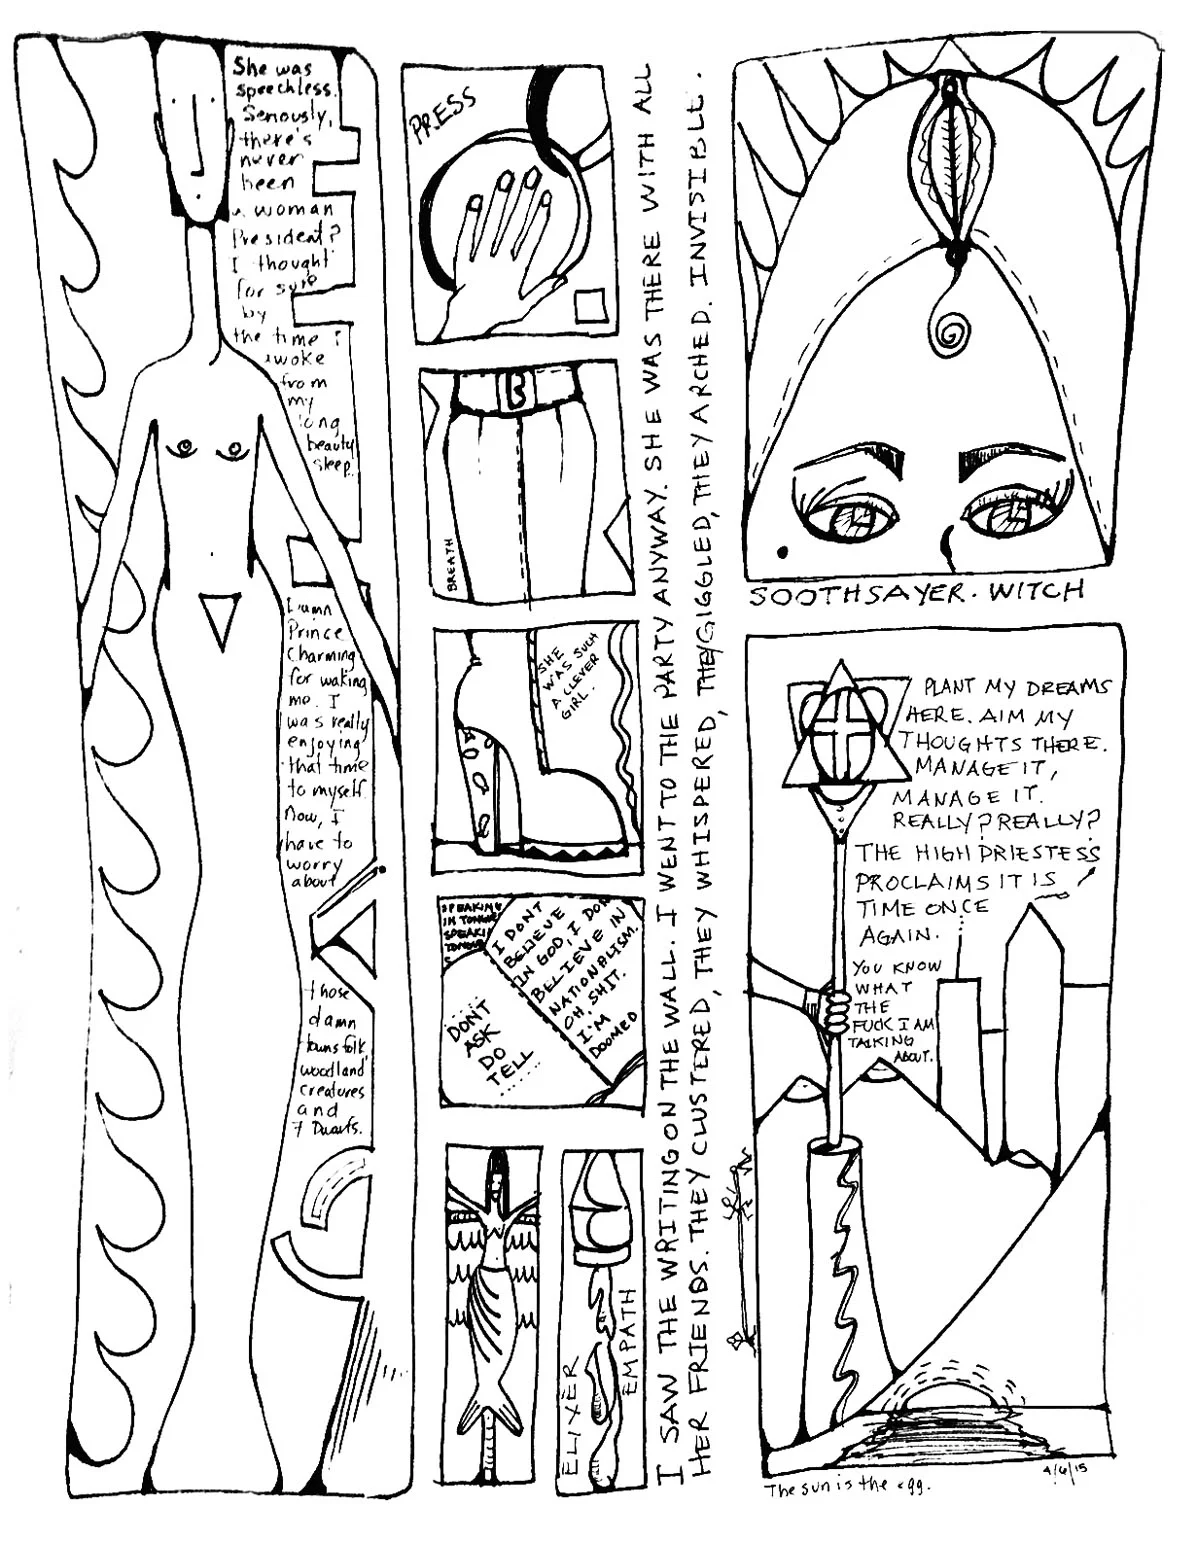 She was
speechless.
Seriously,
there's
never
been
a woman
President?
I thought
for sure
by
the time I
awoke
from
my
long
beauty
sleep.
Damn
Prince
Charming
for waking
me. I
was really
enjoying
that time
to myself
Now, I
have to
worry
about
those
damn
townsfolk,
woodland
creatures
and
7 Dwarfs.
PRESS
B
BREATH
SHE
WAS SUCH
A CLEVER
GIRL.
SPEAKING
IN TONGUES
SPEAKING
TONGUE
I DONT
BELIEVE
IN GOD, I DON
BELIEVE IN
NATIONALISM.
OH, SHIT.
I'M
DOOMED
DON'T
ASK
DO
TELL......
ELIXER
EMPATH
I SAW THE WRITING ON THE WALL. I WENT TO THE PARTY ANYWAY. SHE WAS THERE WITH ALL
HER FRIENDS. THEY CLUSTERED, THEY WHISPERED, THEY GIGGLED, THEY ARCHED. INVISIBLE.
SOOTHSAYER. WITCH
PLANT MY DREAMS
HERE. AIM MY
THOUGHTS THERE.
MANAGE IT,
MANAGE IT.
REALLY? REALLY?
THE HIGH PRIESTESS
PROCLAIMS IT IS
TIME ONCE
AGAIN.
YOU KNOW
WHAT
THE
FUCK I AM
TALKING
ABOUT.
The sun is the egg.
4/6/15